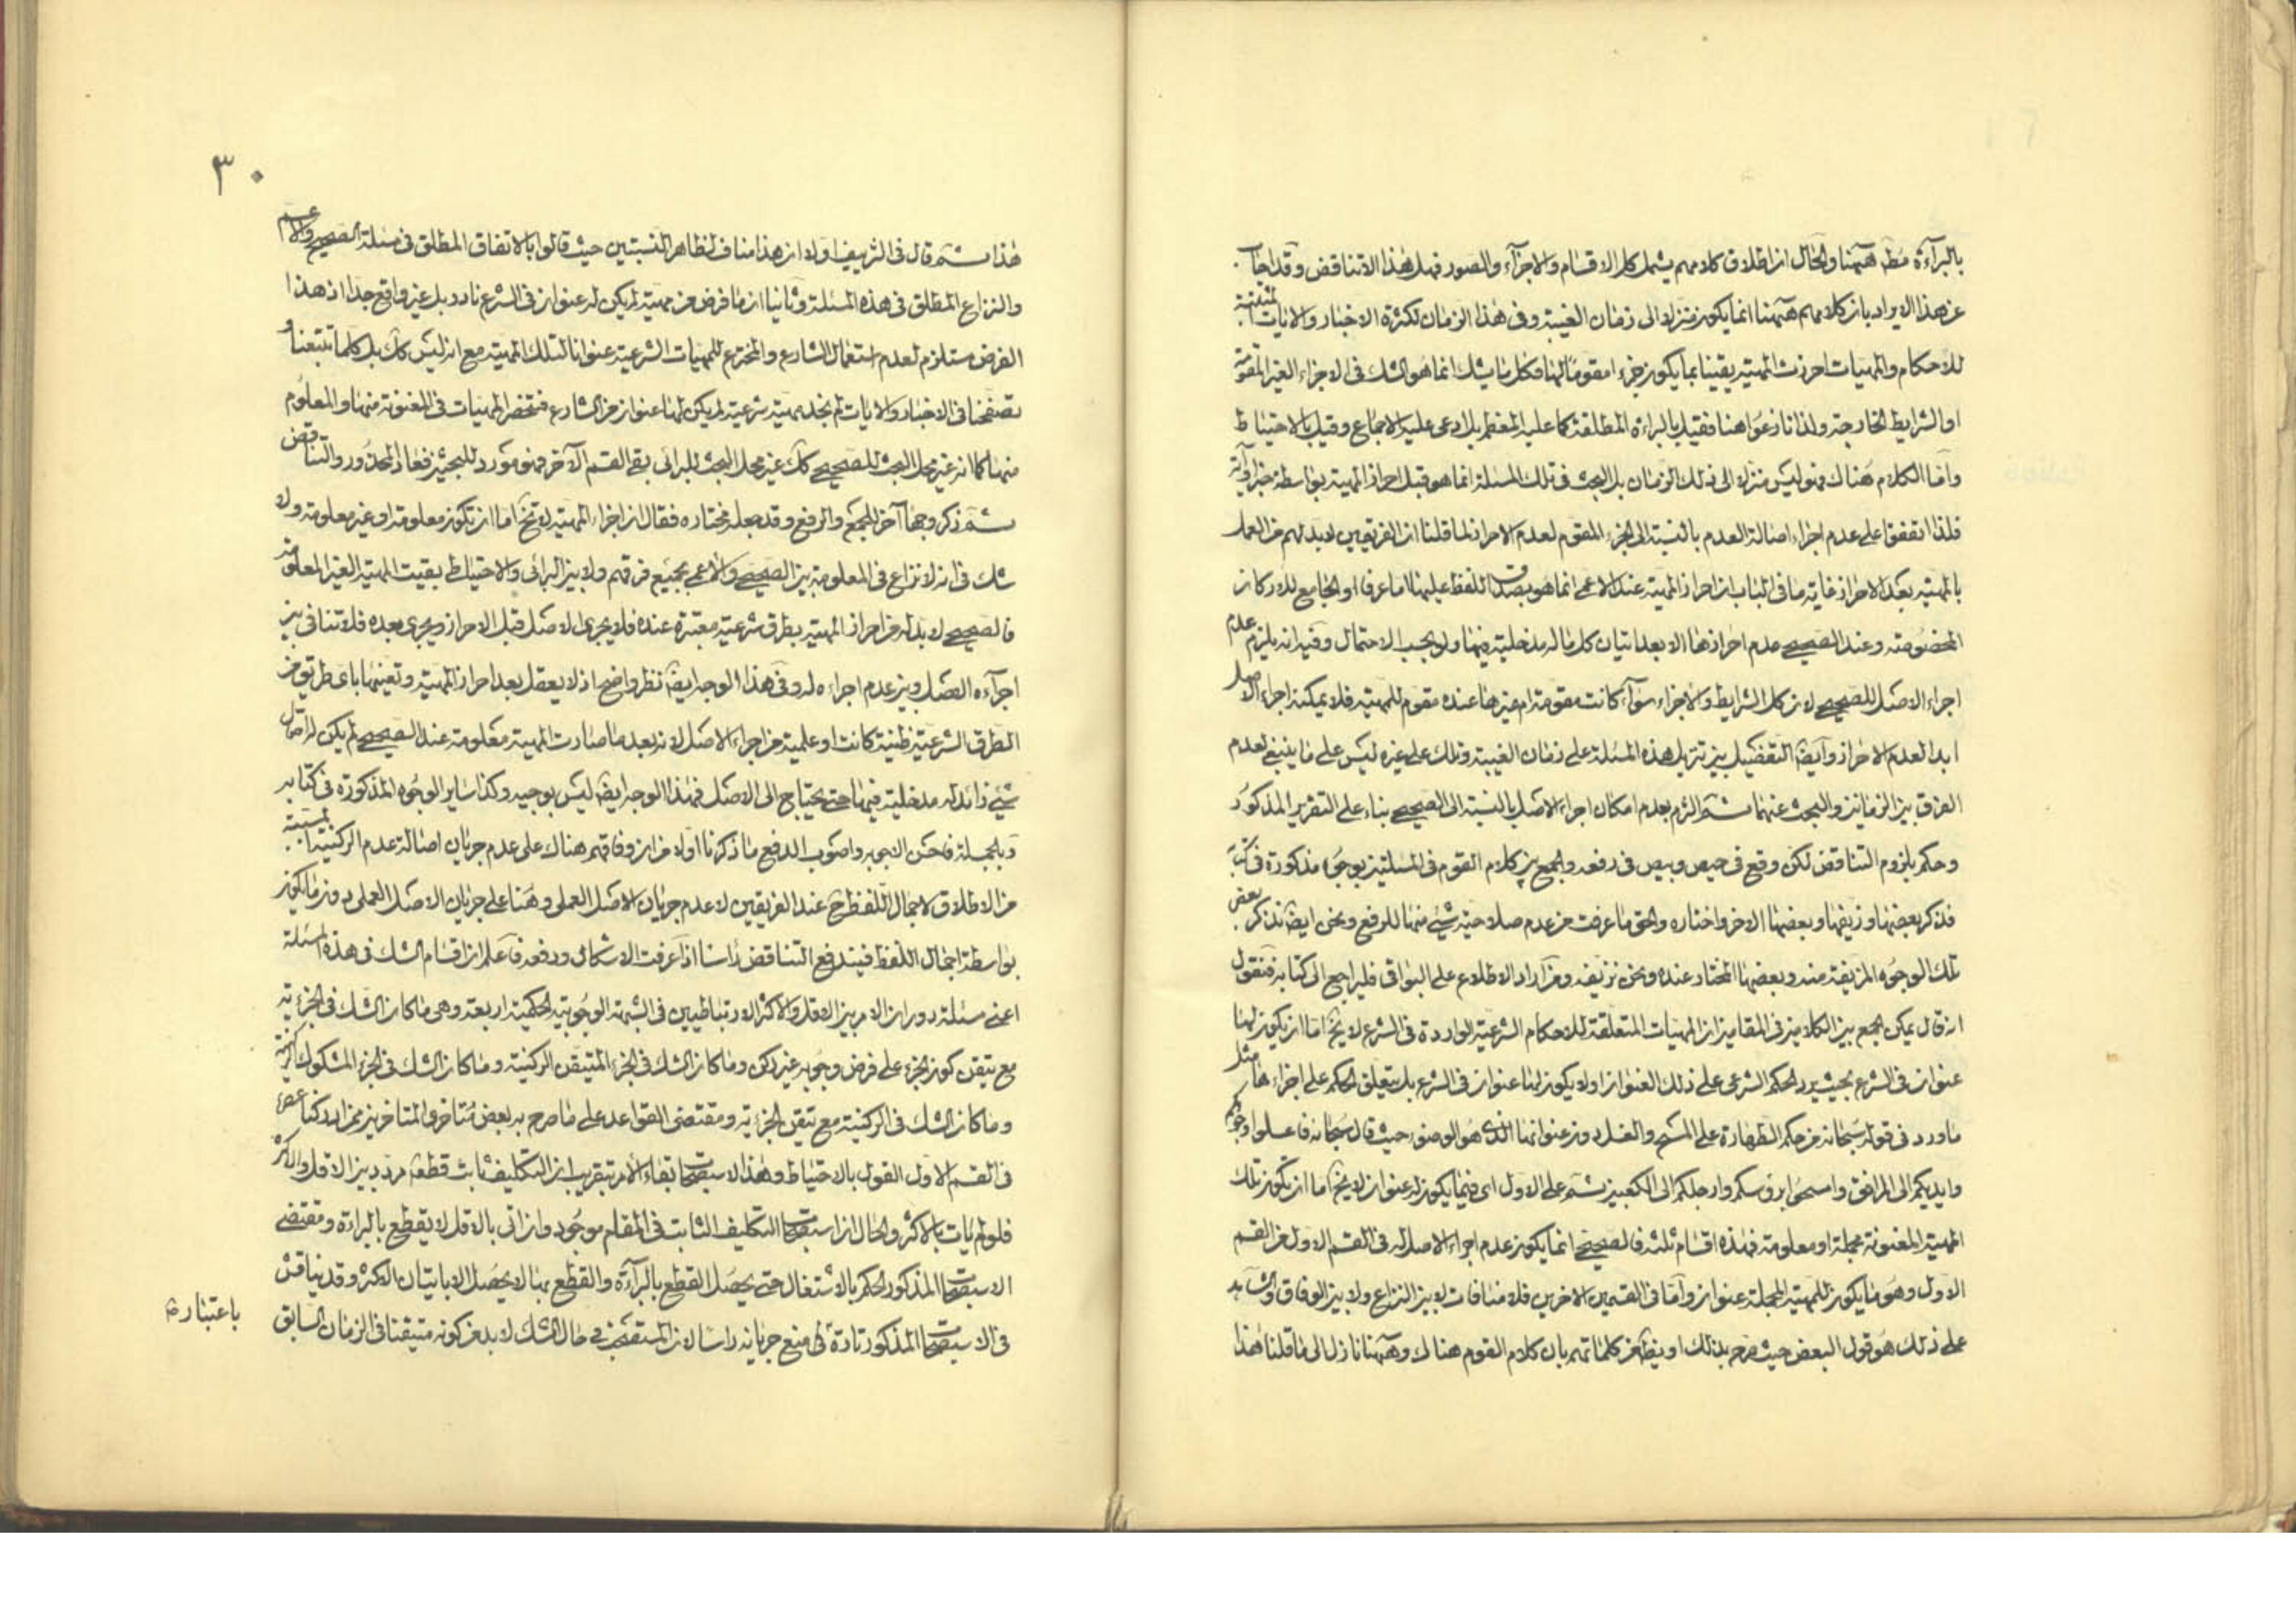 بالبرآءة مُطَ ههنا والحال ان اطلاق كلامهم يشمل كل الاقسام والاجزآء والصور فهل هذا الا تناقض وقد اجاب
عن هذا الايراد بان كلامهم ههنا انما يكون منزلا الى زمان الغيبة وفى هذا الزمان لكثرة الاخبار والايات المثبتة
للاحكام والمهيات احرزت المهية يقينا بما يكون جزء امقوما لها فكل ما يشك انما هو الشك فى الاجزاء الغير المقومة
او الشرايط الخارجة ولذا نازعوا هنا فقيل بالبراءة المطلقة كما عليه المعظم بل ادعى عليه الاجماع وقيل بالاحتياط
واما الكلام هناك فهو ليس منزلا الى ذلك الزمان بل البحث فى تلك المسئلة انما هو قبل احراز المهية بواسطة خبر او آية
فلذا اتفقوا على عدم اجراء اصالة العدم بالنسبة الى الجزء المقوم لعدم الاحراز لما قلنا ان الفريقين لا بد لهم من العمل
بالمهية بعد الاحراز غاية ما فى الباب ان احراز المهية عند الاعمى انما هو بصدق اللفظ عليها اما عرفا او الجامع للاركان
المخصوصة وعند الصحيحى عدم احرازها الا بعد اتيان كل ما له مدخلية فيها ولو بحسب الاحتمال وفيه انه يلزم عدم
اجراء الاصل للصحيحى لان كل الشرايط والاجزاء سوآء كانت مقومة ام غيرها عنده مقوم للمهية فلا يمكنه اجراء الاصل
ابدا لعدم الاحراز وايضا التفصيل بين تنزيل هذه المسئلة على زمان الغيبة وتلك على غيره ليس على ما ينبغى لعدم
الفرق بين الزمانين والبحث عنهما ثم التزم بعدم امكان اجراء الاصل بالنسبة الى الصحيحى بناء على التقرير المذكور
وحكم بلزوم التناقض لكن وقع فى حيص وبيص فى رفعه والجمع بين كلام القوم فى المسئلتين بوجوه مذكورة فى كتابه
فذكر بعضها وزيفها وبعضها الاخر واختاره والحق ما عرفت من عدم صلاحية شىء منها للرفع ونحن ايضا نذكر بعض
تلك الوجوه المزيفة منه وبعضها المختار عنده ونحن نزيفه ومن اراد الاطلاع على البواقى فليراجع الى كتابه فنقول
انه قال يمكن الجمع بين الكلامين فى المقامين ان المهيات المتعلقة للاحكام الشرعية الواردة فى الشرع لا يخ اما ان يكون لها
عنوان فى الشرع بحيث يرد الحكم الشرعى على ذلك العنوان او لا يكون لها عنوان فى الشرع بل يتعلق الحكم على اجزاءها مثل
ما ورد فى قوله سبحانه من حكم الطهارة على المسح والغسل دون عنوانها الذى هو الوضوء حيث قال سبحانه فاغسلوا وجوهكم
وايديكم الى المرافق وامسحوا برؤسكم وارجلكم الى الكعبين ثم على الاول اى فيما يكون له عنوان لا يخ اما ان يكون تلك
المهية المعنونة مجملة او معلومة فهذه اقسام ثلثة فالصحيحى انما يكون عدم اجراء الاصل له فى القسم الاول من القسم
الاول وهو ما يكون للمهية المجملة عنوان واما فى القسمين الاخرين فلا منافات لا بين النزاع ولا بين الوفاق والشاهد
على ذلك هو قول البعض حيث صرح بذلك او يظهر من كلماتهم بان كلام القوم هناك وههنا نازل الى ما قلنا هذا
٣٠
هذا ثم قال فى التزييف اولا ان هذا مناف لظاهر النسبتين حيث قالوا بالاتفاق المطلق فى مسئلة الصحيح والاعم
والنزاع المطلق فى هذه المسئلة وثانيا ان ما فرض من مهية لم يكن له عنوان فى الشرع نادر بل غير واقع جدا اذ هذا
الفرض مستلزم لعدم استعمال الشارع والمخترع للمهيات الشرعية عنوانا لتلك المهية مع انه ليس كك بل كلما تتبعنا و
تصفحنا فى الاخبار والايات لم نجد مهية شرعية لم يكن لها عنوان من الشارع فتنحصر المهيات فى المعنونة منها والمعلوم
منها كما انه غير محل البحث للصحيحى كك غير محل البحث للبرائى بقى القسم الآخر فهو مورد للبحثين فعاد المحذور والتناقض
ثم ذكر وجها آخر للجمع والرفع وقد جعله مختاره فقال ان اجزاء المهية لا تخ اما ان تكون معلومة او غير معلومة ولا
شك فى انه لا نزاع فى المعلومة بين الصحيحى والاعمى بجميع فرقهم ولا بين البرائى والاحتياطى بقيت المهية الغير المعلومة
فالصحيحى لا بد له من احراز المهية بطرق شرعية معتبرة عنده فلا يجرى الاصل قبل الاحراز ويجرى بعده فلا تنافى بين
اجرآءه الاصل وبين عدم اجراءه له وفى هذا الوجه ايضا نظر واضح اذ لا يعقل بعد احراز المهية وتعينها باى طريق من
الطرق الشرعية ظنية كانت او علمية من اجراء الاصل لانه بعد ما صارت المهية معلومة عند الصحيحى لم يكن له احتمال
شىء زائد له مدخلية فيها حتى يحتاج الى الاصل فهذا الوجه ايضا ليس بوجيه وكذا ساير الوجوه المذكورة فى كتابه
وبالجملة فاحسن الاجوبه واصوب الدفع ما ذكرنا اولا من ان وفاقهم هناك على عدم جريان اصالة عدم الركنية
من الاطلاق لاجمال اللفظ ح عند الفريقين لا عدم جريان الاصل العملى وهنا على جريان الاصل العملى دون ما يكون
بواسطة اجمال اللفظ فيندفع التناقض رأسا اذا عرفت الاشكال ودفعه فاعلم ان اقسام الشك فى هذه المسئلة
اعنى مسئلة دوران الامر بين الاقل والاكثر الارتباطيين فى الشبهة الوجوبية الحكمية اربعة وهى ما كان الشك فى الجزئية
مع تيقن كون الجزء على فرض وجوبه غير ركن وما كان الشك فى الجزء المتيقن الركنية وما كان الشك فى الجزء المشكوك الركنية
وما كان الشك فى الركنية مع تيقن الجزئية ومقتضى القواعد على ما صرح به بعض متاخرى المتاخرين ممن ادركنا عصره
فى القسم الاول القول بالاحتياط وهذا لاستصحاب بقاء الامر بتقريب ان التكليف ثابت قطعا مردد بين الاقل والاكثر
فلو لم يات بالاكثر والحال ان استصحاب التكليف الثابت فى المقام موجود وان اتى بالاقل لا يقطع بالبراءة ومقتضى
الاستصحاب المذكور الحكم بالاشتغال حتى يحصل القطع بالبرآءة والقطع بها لا يحصل الا باتيان الاكثر وقد يناقش
فى الاستصحاب المذكور تارة فى منع جريانه راسا لان المستصحب فى حال الشك لا بد من كونه متيقنا فى الزمان السابق
باعتباره